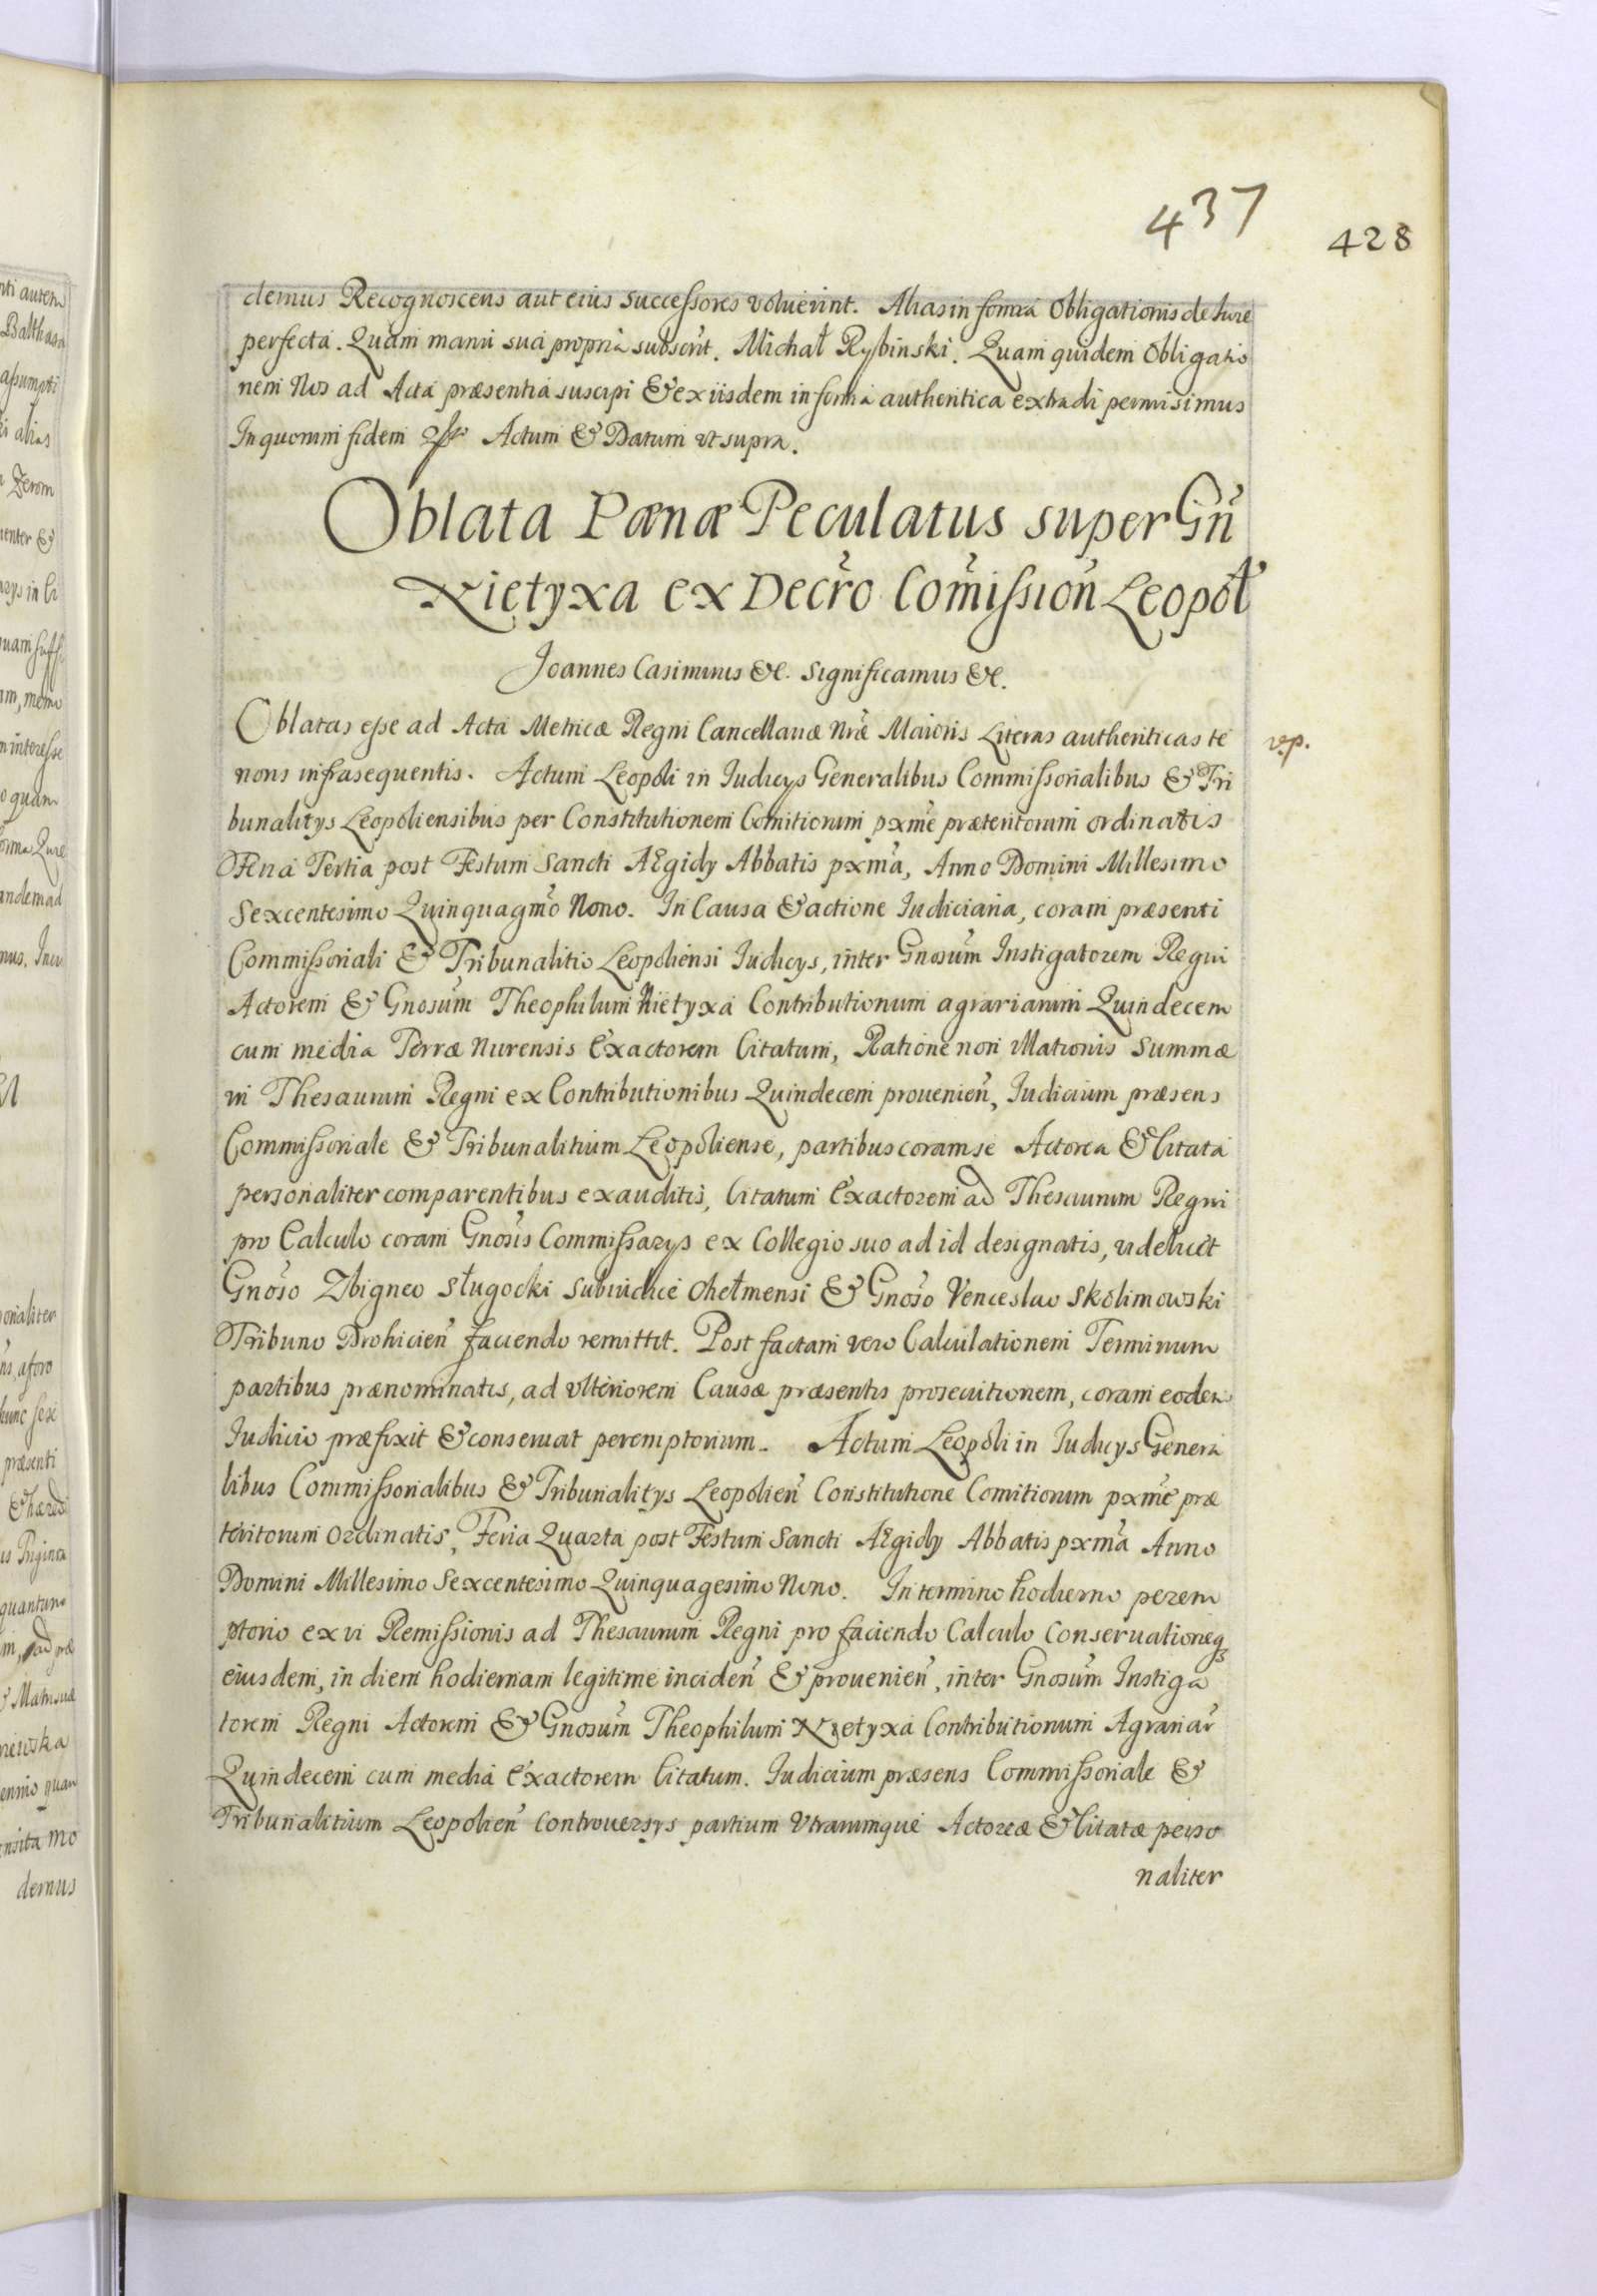 437
428
demus Recognoscens aut eius successores voluerint. Alias in forma Obligationis de Iure
perfecta. Quam manu sua propria subscrit. Michał Rybinski. Quam quidem Obligatio
nem Nos ad Acta præsentia suscipi & ex iisdem in forma authentica extradi permisimus
In quorum fidem Actum & Datum ut supra.
Oblata Pænæ Peculatus super Gn̄
Nietyxa ex Decr̄o Com̄ission̄ Leopol
Joannes Casimirus &c. Significamus &c.
Oblatas esse ad Acta Metricæ Regni Cancellariæ Nr̄æ Maioris Literas authenticas te
v.p.
noris infrasequentis. Actum Leopoli in Iudicys Generalibus Commissorialibus & Tri
bunalitys Leopoliensibus per Constitutionem Comitiorum pxmē præteritorum ordinatis
Feria Tertia post Festum Sancti AEgidy Abbatis pxm̄a, Anno Domini Millesimo
Sexcentesimo Quinquagm̄o Nono. In Causa & actione Iudiciaria, coram præsenti
Commissoriali & Tribunalitio Leopoliensi Iudicys, inter Gnosūm Instigatorem Regni
Actorem & Gnosūm Theophilum Nietyxa Contributionum agrariarum Quindecem
cum media Terræ Nurensis Exactorem Citatum, Ratione non illationis Summæ
in Thesaurum Regni ex Contributionibus Quindecem prouenien̄, Iudicium præsens
Commissoriale & Tribunalitium Leopoliense, partibus coram se Actorea & Citata
personaliter comparentibus exauditis, Citatum Exactorem ad Thesaurum Regni
pro Calculo coram Gnosīs Commissarys ex Collegio suo ad id designatis, videlicet
Gnosō Zbigneo Sługocki Subiudice Chełmensi & Gnosō Venceslao Skolimowski
Tribuno Drohicien̄ faciendo remittit. Post factam vero Calculationem Terminum
partibus prænominatis, ad vlteriorem Causæ præsentis prosecutionem, coram eodem
Iudicio præfixit & conseruat peremptorium. Actum Leopoli in Iudicys Genera
libus Commissorialibus & Tribunalitys Leopolien̄ Constitutione Comitiorum pxmē præ
teritorum Ordinatis, Feria Quarta post Festum Sancti AEgidy Abbatis pxm̄a Anno
Domini Millesimo Sexcentesimo Quinquagesimo Nono. In termino hodierno perem
ptorio ex vi Remissionis ad Thesaurum Regni pro faciendo Calculo Conseruationeq̄
eiusdem, in diem hodiernam legitime inciden̄ & prouenien̄, inter Gnosūm Instiga
torem Regni Actorem & Gnosūm Theophilum Nietyxa Contributionum Agrariar̄
Quindecem cum media Exactorem Citatum. Iudicium præsens Commissoriale &
Tribunalitium Leopolien̄ Controuersys partium Vtrarumque Actoreæ & Citatæ perso
naliter